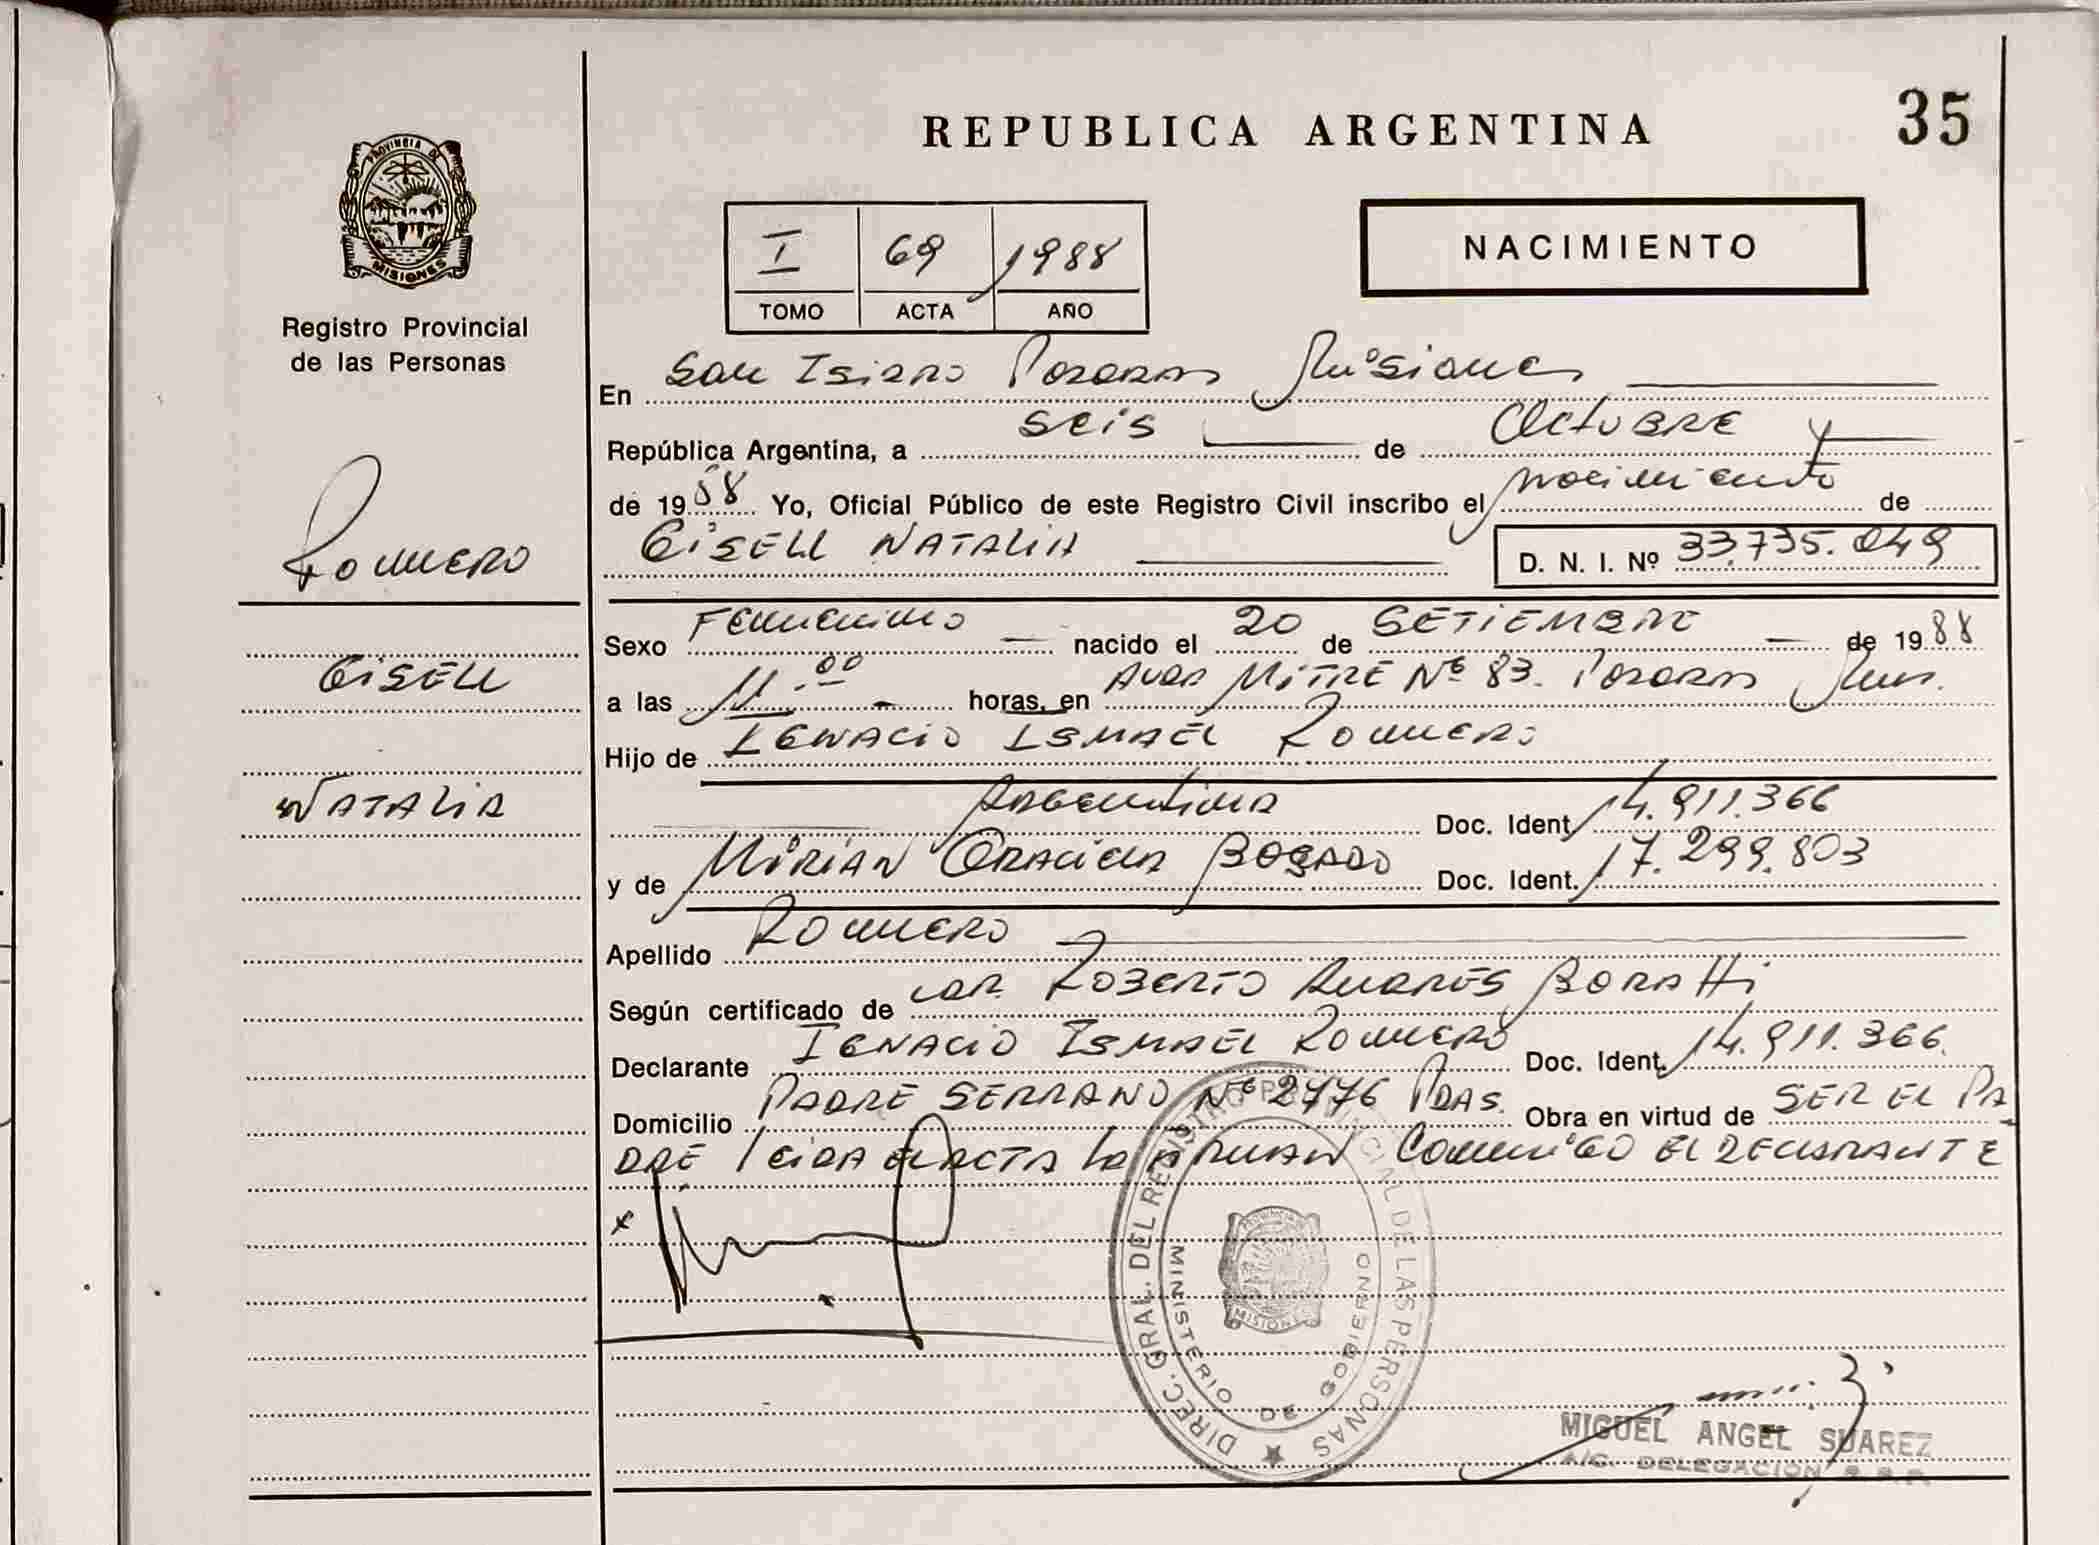 REPUBLICA ARGENTINA
35
PROVINCIA DE
MISIONES
Registro Provincial
de las Personas
I 69 1988
TOMO ACTA AÑO
NACIMIENTO
En San Isidro Posadas Misiones
República Argentina, a seis de Octubre y
de 1988 Yo, Oficial Público de este Registro Civil inscribo el nacimiento de
GISELL NATALIA D. N. I. Nº 33.735.049
ROMERO
GISELL
NATALIA
Sexo Femenino nacido el 20 de SETIEMBRE de 1988
a las 11.00 horas, en Avda MITRE Nº 83. Posadas Mnes.
Hijo de IGNACIO ISMAEL ROMERO
Argentina Doc. Ident. 14.911.366
y de MIRIAN GRACIELA BOGADO Doc. Ident. 17.299.803
Apellido ROMERO
Según certificado de ROBERTO BORATTI
Declarante IGNACIO ISMAEL ROMERO Doc. Ident. 14.911.366.
Domicilio PADRE SERRANO Nº 2776 PDAS. Obra en virtud de SER EL PA
DRE leida el ACTA la FIRMAN Conmigo EL DECLARANTE
x
DIREC. GRAL. DEL REGISTRO PROVINCIAL DE LAS PERSONAS
MINISTERIO DE GOBIERNO
PROVINCIA
MISIONES
MIGUEL ANGEL SUAREZ
A/C. DELEGACION